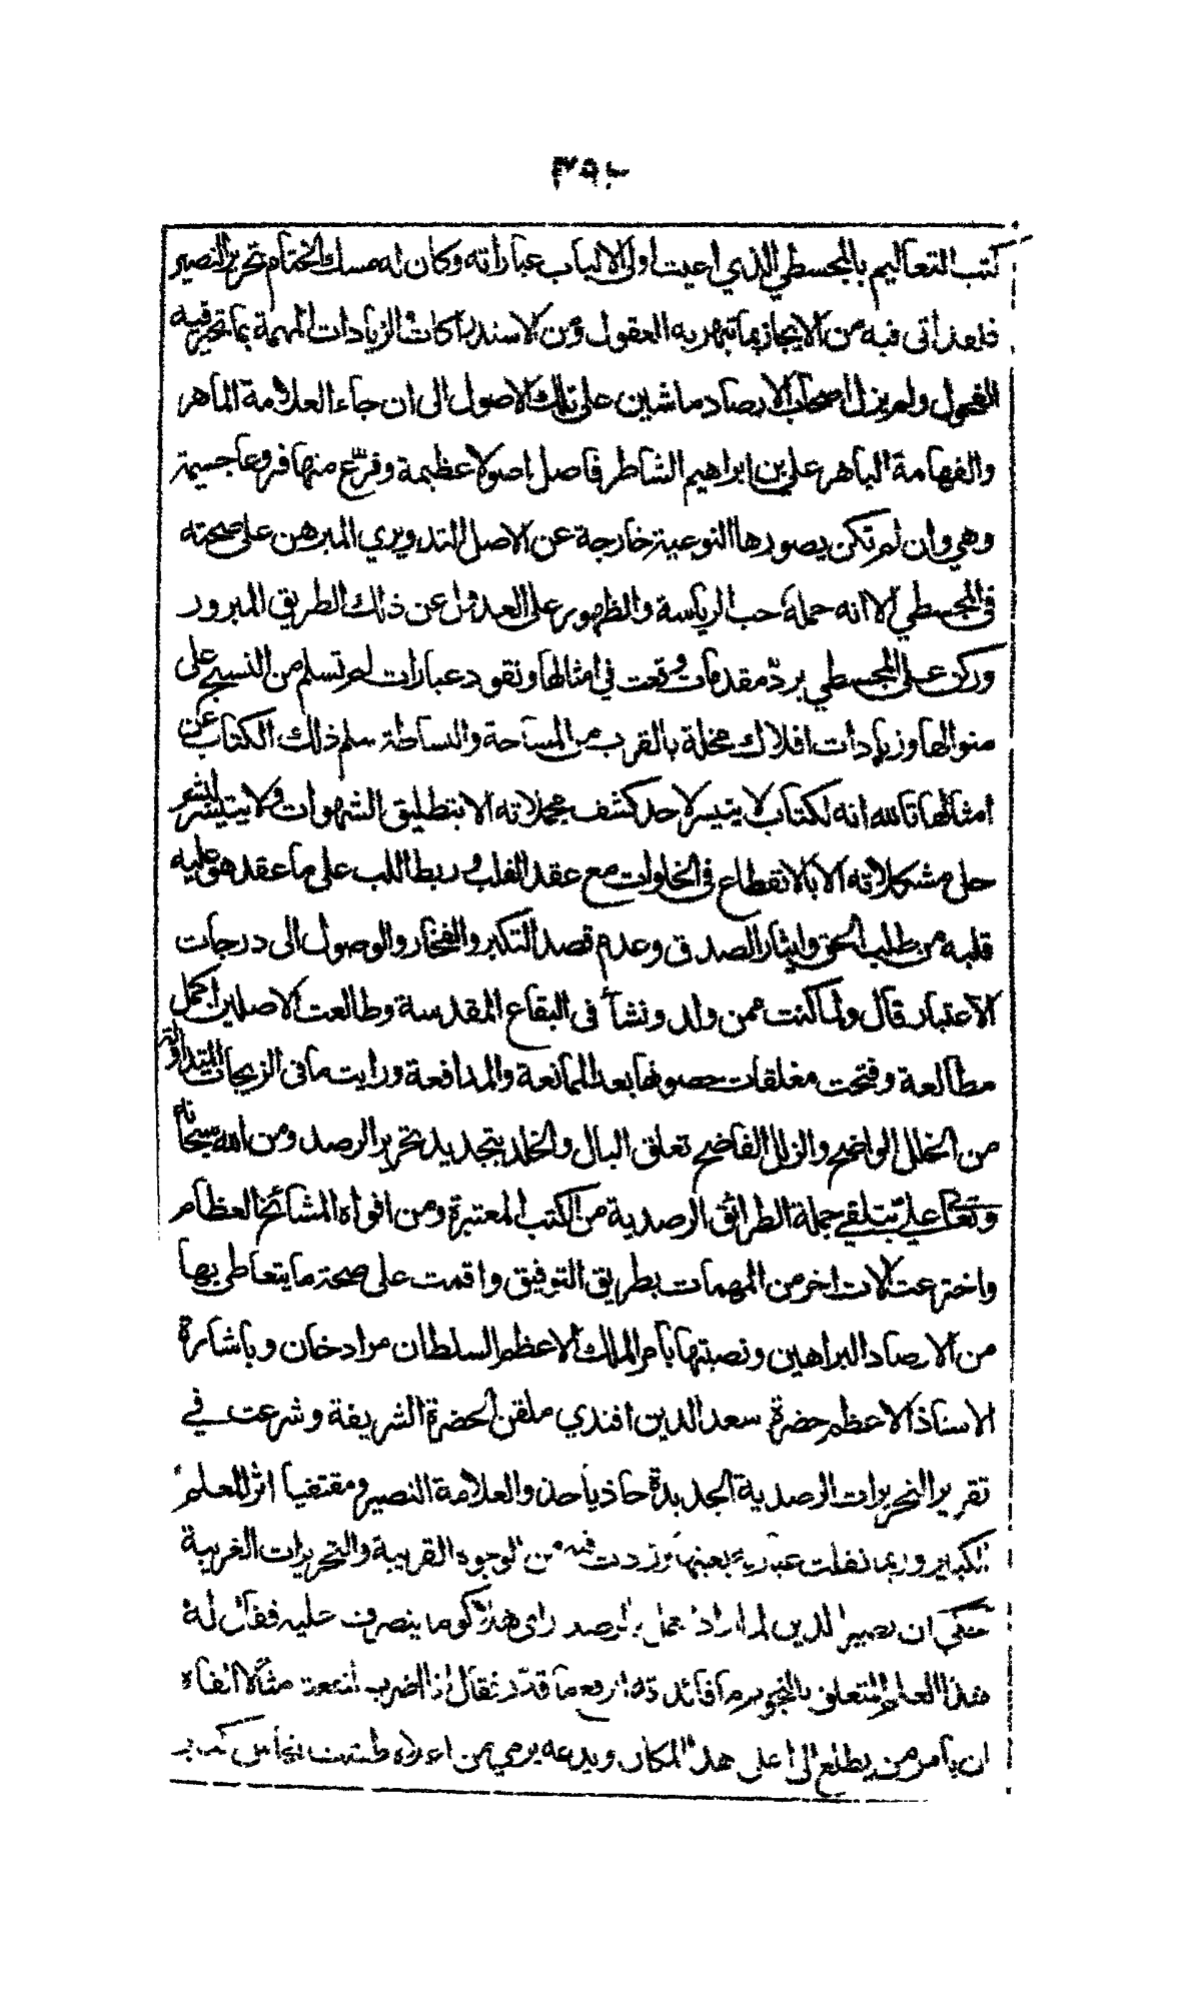 ٣٩٠
كتب التعاليم بالمجسطي الذي اعيت اولى الالباب عباراته وكان له مسك الختام تحرير النصير
فلقد اتى فيه من الايجاز بما تبهر به العقول ومن الاستدراكات والزيادات المهمة بما تحير فيه
الفحول ولم يزل اصحاب الارصاد ماشين على تلك الاصول الى ان جاء العلامة الماهر
والفهامة الباهر علي بن ابراهيم الشاطر فاصل اصولا عظيمة وفرّع منها فروعا جسيمة
وهي وان لم تكن بصورها النوعية خارجة عن الاصل التدويري المبرهن على صحته
في المجسطي الا انه حمله حب الرياسة والظهور على العدول عن ذلك الطريق المبرور
وركن على المجسطي بردّ مقدمات وقعت في امثالها ونقود عبارات لم تسلم من النسج على
منوالها وزيادات افلاك مخلة بالقرب من المساحة والبساطة سلم ذلك الكتاب عن
امثالها تالله انه لكتاب لا يتيسر لاحد كشف مجملاته الا بتطليق الشهوات ولا يتيسر لبشر
حل مشكلاته الا بالانقطاع في الخلوات مع عقد القلب وربط اللب على ما عقد هو عليه
قلبه من طلب الحق وايثار الصدق وعدم قصد التكبر والفخار والوصول الى درجات
الاعتبار قال ولما كنت ممن ولد ونشأ في البقاع المقدسة وطالعت الاصلين اكمل
مطالعة وفتحت مغلقات حصونها بعد الممانعة والمدافعة ورايت ما في الزيجات المتداولة
من الخلل الواضح والزلل الفاضح تعلق البال والخلد بتجديد تحرير الرصد ومن الله سبحانه
وتعالى علي بتلقي جملة الطرائق الرصدية من الكتب المعتبرة ومن افواه المشائخ العظام
واخترعت الات اخر من المهمات بطريق التوفيق واقمت على صحة ما يتعاطى بها
من الارصاد البراهين ونصبتها بامر الملك الاعظم السلطان مراد خان وباشارة
الاستاذ الاعظم حضرة سعد الدين افندي ملقن الحضرة الشريفة وشرعت في
تقرير التحريرات الرصدية الجديدة حاذيا حذو العلامة النصير ومقتفيا اثر المعلم
الكبير وربما نقلت عبارته بعينها وزدت فيه من الوجوه القريبة والتحريرات الغريبة
حكي ان نصير الدين لما اراد عمل الرصد راى هلاكو ما ينصرف عليه فقال له
هذا العلم المتعلق بالنجوم ما فائدته ارفع ما قدّر فقال اذا اضرب لمنفعة مثالا القاه
ان يامر من يطلع الى اعلى هذا المكان ويدعه يرمي من اعلاه طشت نحاس كبير